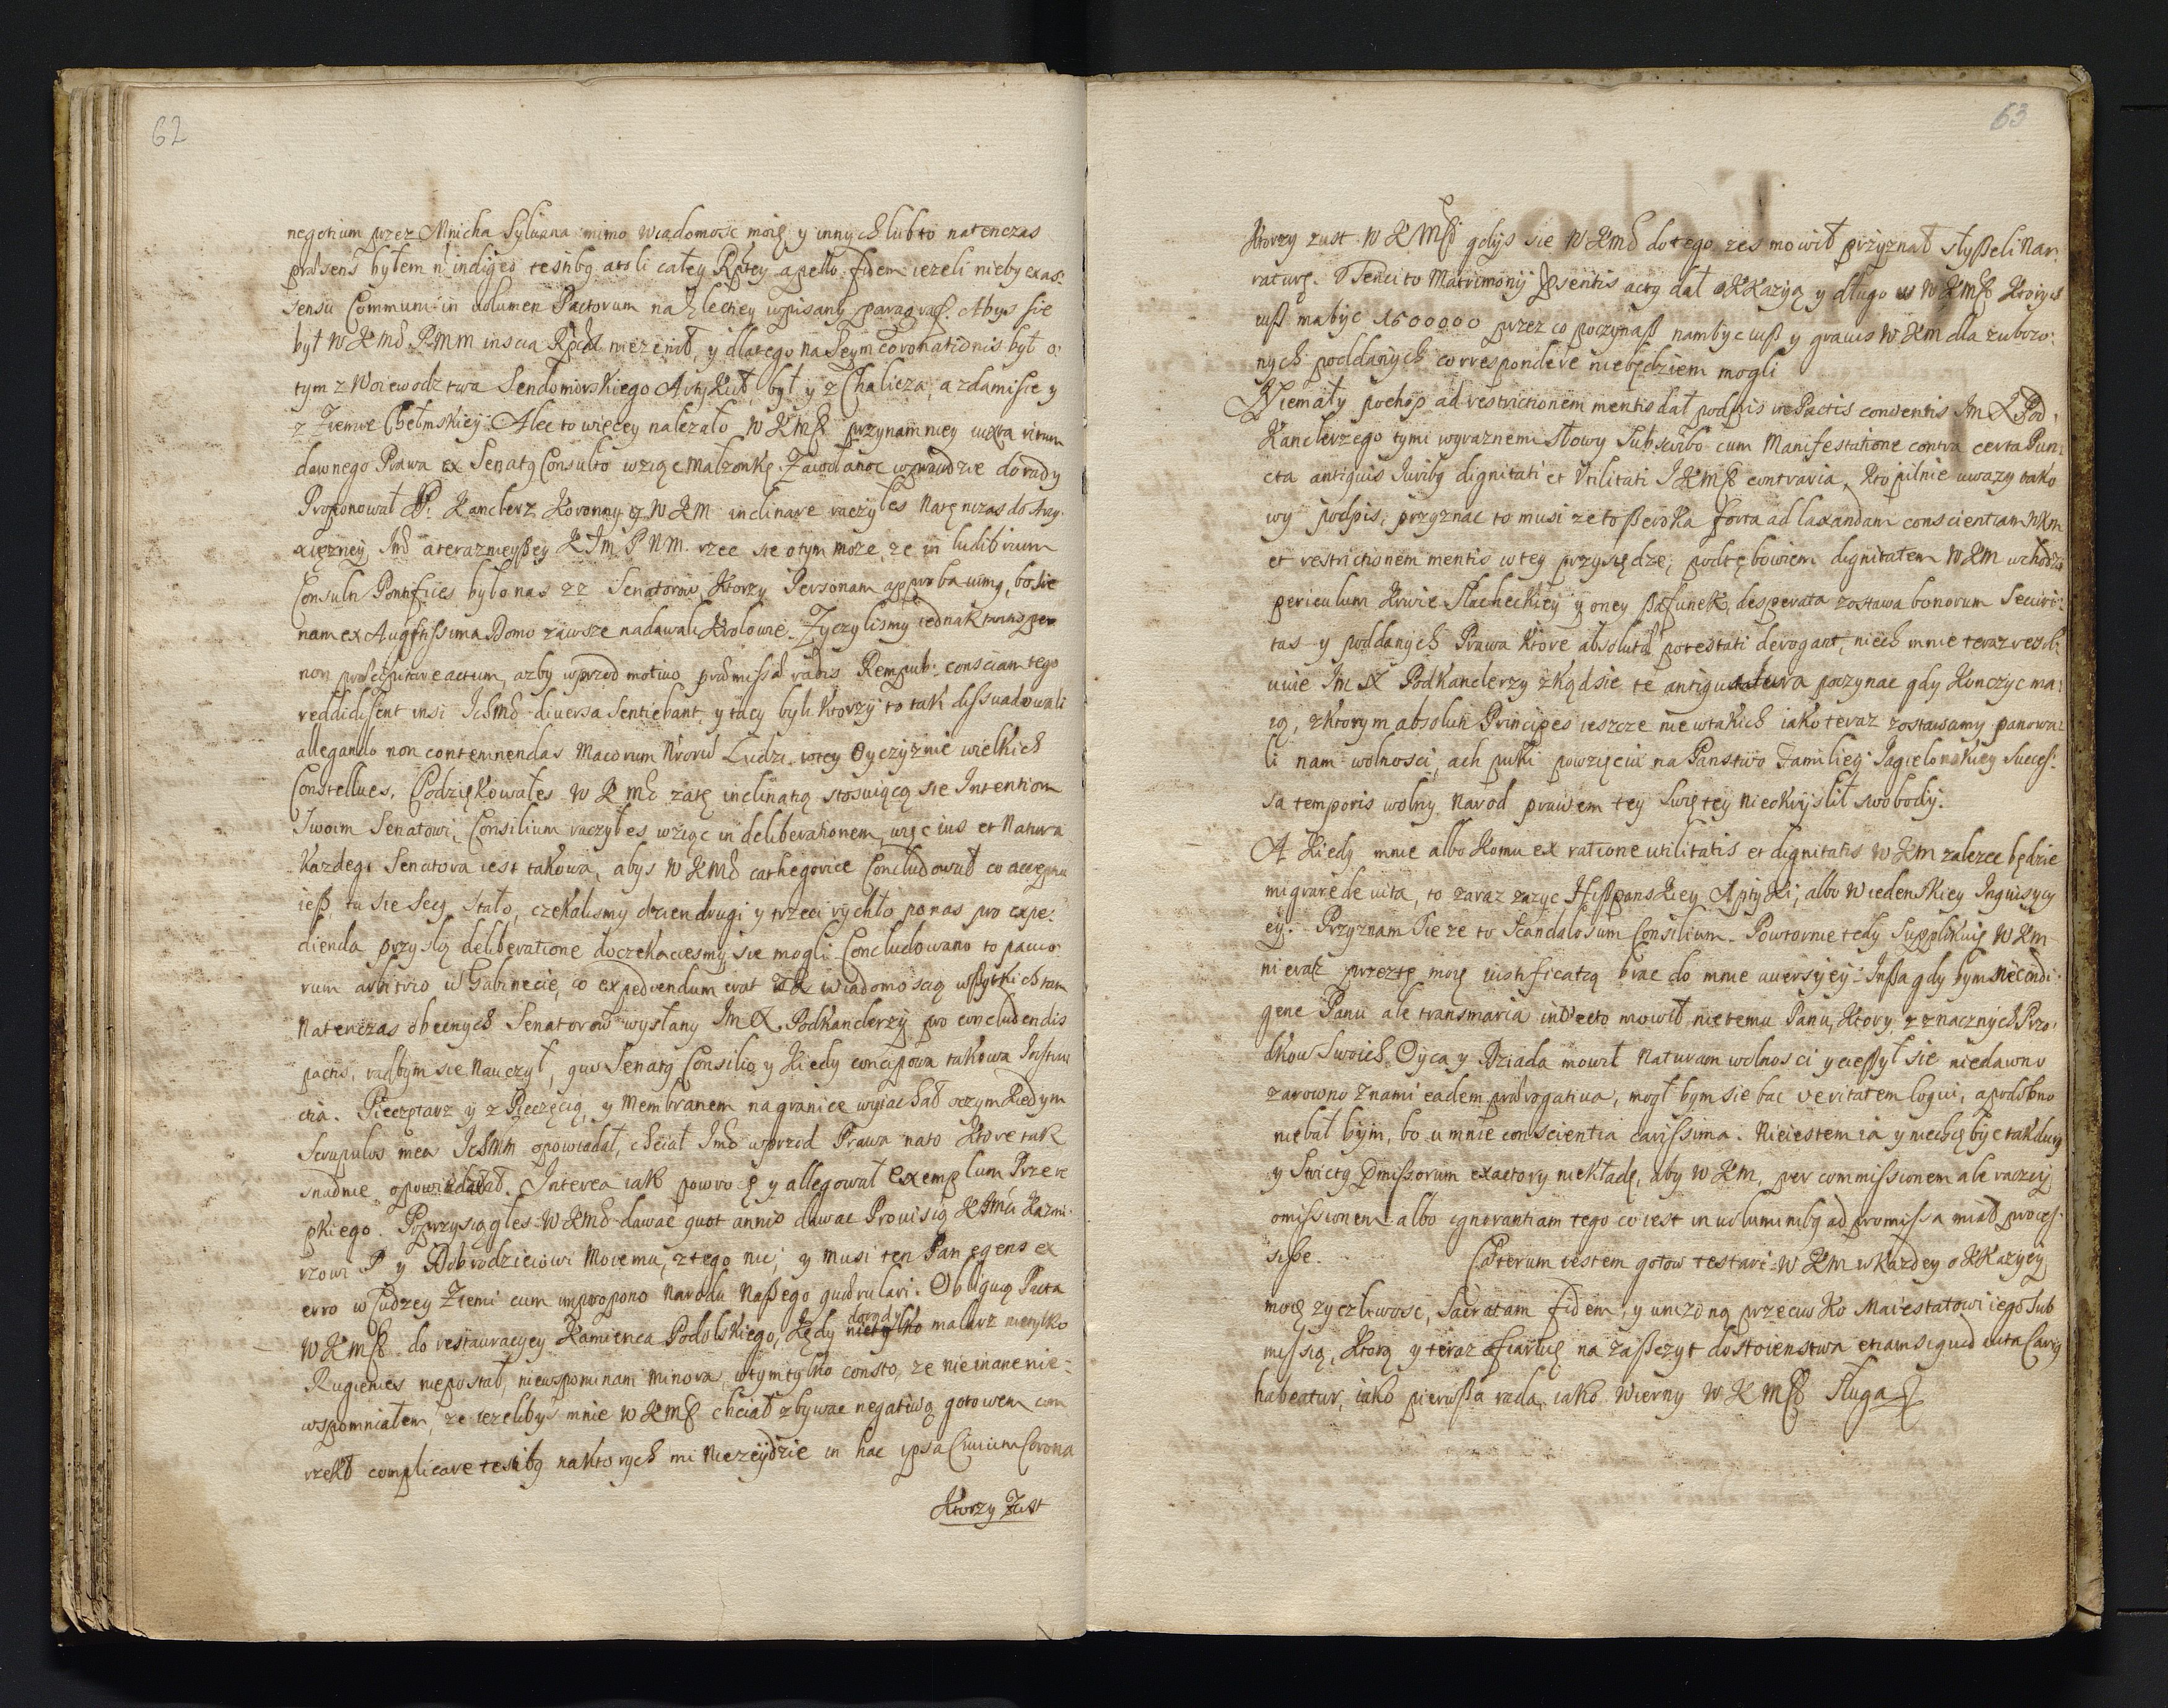 62
negotium przez Mnicha Sylvana mimo wiadomosc moię y innych lubto natenczas
præsens byłem n indigeo testibg atoli całey Rptey apello fidem iezeli nieby ex as:
sensu Communi in volumen Pactorum na Elekcyey wpisany paragraf. Abys sie
był WKMć PMM inscia Rpca nie zenił, y dlatego na Seym Coronationis był o:
tym z Woiewodztwa Sendomirskiego Artykuł, był y z Chalicza, a zda mi sie y
z Ziemie Chełmskiey. Alec to więcey nalezało WKMć przynamniey iuxta ritum
dawnego Prawa ex Senatg Consulto wziąc Malzonkę. Zawołanoc wprawdzie do rady
Proponował JP. Kanclerz Koronny gż WKM inclinare raczyłes Natęnczas do Arcy
xięzney Imć a terazneyszey KJm PNM. rzec sie o tym moze, ze in ludibrium
Consuln Pontifices było nas 22 Senatorow, Ktorzy Personam approbavimg, bo sie
nam ex Augustissima Domo zawsze nadawali Krolowie. Zyczylismy iednak
non præcipitare actum, azby wprzod motivo præmissæ radis Rempub: consciam tego
reddidissent insi Ichmć diversa sentiebant y tacy byli Ktorzy to tak dissuadowali
allegando non contemnendas Macorum Ludzi w tey Oyczyznie wielkich
Constellues. Podziękowałes WKMć zatę inclinatią stosuiącą sie Intentiom
Swoim Senatowi, Consilium raczyłes wziąc in deliberationem, więc ius et Natura
Kazdego Senatora iest takowa, abys WKMć cathegorice Concludował co accepta
iesz, tu sie Secg stało, czekalismy dzien drugi y trzeci rychło po nas pro expe:
dienda przyslą deliberatione doczekaciesmy sie mogli. Concludowano to pauco:
rum arbitrio w Gabinecie, co expedvendum erat Za wiadomoscią wszytkich tam
Natenczas obecnych Senatorow wysłany Jm X. Podkanclerzy pro concludendis
pactis, radbym sie Nauczył, quo Senatg Consilio y Kiedy concipowa takowa Instru
ctia. Pieczętarz y z Pieczęcią, y Membranem na granice wyiachał oczym Kiedym
Scrupulos meos Ichmm opowiadał, chciał Imć wprzod Prawa na to Ktore tak
snadnie opowiadał. Interea iak powro ę y allegował Exemplum Przere
pkiego. Poprzysiągłes WKMć dawac quot annis dawac Prouisią KJmći Kazmi
rzowi P y Dobrodzieiowi Moiemu, z tego nic, y musi ten Pan egens ex
erro w Cudzey Ziemi cum improperio Narodu Naszego quærulari. Obliguią Pacta
WKMć do restauracyey Kamienca Podolskiego, Kędy dotąd niety ko malarz nietylko
Rugieniers niepostał, niewspominam minora, w tym tylko consto, ze nie inane nie:
wspomniałem, ze iezelibys mnie WKMć chciał zbywac negativą, gotowem com
rzekł complicare testibg naktorych mi Niezeydzie in hac ipsa Civium Corona
Ktorzy Zust
63
Ktorzy zust WKMći gdys sie WKMć do tego zes mowił przyznał słyszeli Nar:
raturę. Tenci to Matrimonij Psentis actg dał oKKazyą y długo WKMć Ktorych
iusz mabyc 1500000 przez co poczynasz nam byc iusz y gravis WKm dla zubozo:
nych poddanych correspondere niebędziem mogli
Niemały pochop ad restrictionem mentis dał podpis in Pactis conventis Jm X Pod:
Kanclerzego tymi wyraznemi słowy Subscribo cum Manifestatione contra certa Pun:
cta antiquis Juribg dignitati et Utilitati JKMć contraria, Kto pilnie uwazy tako
wy podpis, przyznac to musi ze to szeroka forta ad laxandam conscientiam WKm
et restrictionem mentis w tey przysiędze, podtę bowiem dignitatem WKM wchodzi
periculum Krwie Slacheckiey y oney szafunek, desperata zostawa bonorum Securi:
tas y poddanych Prawa Ktore absolutæ potestati derogant, niech mnie teraz resol:
uuie Jm X Podkanclerzy zkądsie te antiqua iura poczynac gdy Konczyc ma:
ią, zktorym absoluti Principes ieszcze niewtakich iako teraz zostawamy panowa:
li nam wolnosci, ach puki powzięciu na Panstwo Familiey Jagielonskiey Succes:
sa temporis wolny Narod prawem tey Swiętey nieokryslił swobody.
A Kiedy mnie albo Komu ex ratione utilitatis et dignitatis WKm zalezec będzie
migrare de vita, to zaraz zazyc Hiszpanskiey Aptyki, albo Wiedenskiey Inquisycy
ey. Przyznam sie ze to Scandalosum Consilium. Powtornie tedy Supplikuię WKm
nieracz przeztę moię iustificatią brac do mnie auersyey. Insza gdy bym nie indi:
gene Panu ale transmaria invecto mowił, nie temu Panu, Ktory z znacznych Przo:
dkow Swoich Oyca y Dziada mowił Naturam wolnosci y cieszył sie niedawno
zarowno z nami eadem prærogativa, mogł bym sie bac veritatem loqui, a podobno
niebał bym, bo u mnie conscientia carissima. Nieiestem ia y niechcę byc tak dury
y Swictg Pmissorum exactory niekładę, aby WKm, per commissionem ale raczey
omissionem albo ignorantiam tego co iest in voluminibg ad promissa miał proces:
sisse. Cæterum iestem gotow testari WKm wkazdey oKKazyey
moię zyczliwosc, Sacratam fidem, y unizoną przeciwko Maiestatowi iego Sub
missią, Ktorą y teraz ofiaruię na zaszczyt dostoienstwa etiamsi quid vita Carig
habeatur, iako pierwsza rada, iako Wierny WKMći sługa